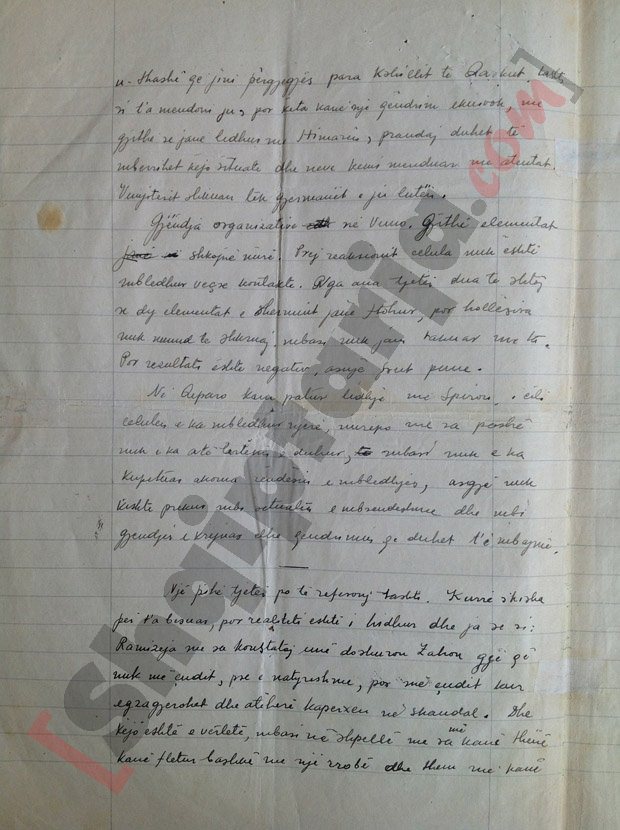 u- thashë që jini përgjegjës para Këshillit të Qarkut, tashti
si t'a mendoni ju, por këta kanë një qëndrim ekuivok, me
gjithë se janë lidhur me Himarën, prandaj duhet të
mbarohet kjo situatë dhe neve kemi menduar me atentat.
Vunjotërit shkuan tek gjermanët e për letën.
Gjëndja organizative në Vuno. Gjithë elementat
shkojnë mirë. Prej reaksionit celula nuk është
mbledhur veçse kontakte. Nga ana tjetër dua të shtoj
se dy elementat e Dhërmiut janë ftohur, por hollësira
nuk mund të shkruaj, mbasi nuk jam takuar me ta.
Por resultati është negativ, asnjë frut pune.
Në Qeparo kam patur lidhje me Spiron, i cili
celulën e ka mbledhur njerë, mirëpo me sa pashë
nuk i ka atë lartësi e duhur, mbasi nuk e ka
kuptuar akoma rëndësin e mbledhjes, asgjë nuk
kishte prekur mbi aktualitetin e mbrendshme dhe mbi
gjendjen e krejnas dhe qëndrimin që duhet t'i mbajmë.
Një pikë tjetër po të referonj tashti. Kurrë s'kisha
për t'a besuar, por realiteti është i hidhur dhe ja se si:
Ramizeja me sa konstatoj unë dashuron Zahon gjë që
nuk më çudit, pse e natyreshme, por më çudit kur
egzagjerohet dhe atëherë kapërxen në skandal. Dhe
kjo është e vërtetë, mbasi në shpellë me sa më kanë thënë
kanë fletur bashkë me një rrobë dhe them më kanë